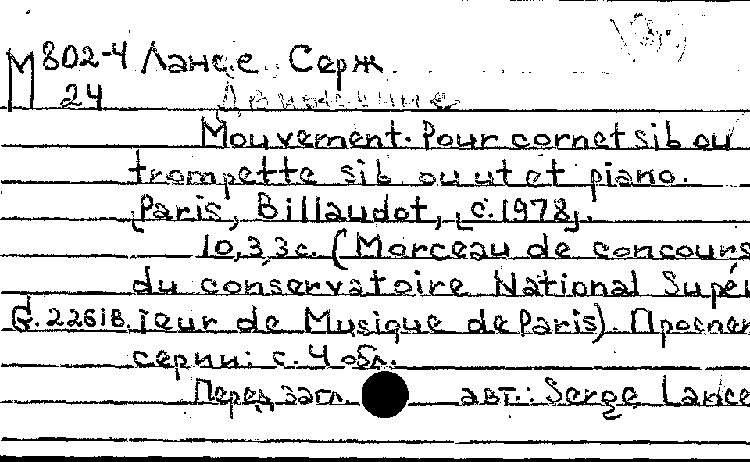 М 802-4 Лансе, Серж
24 Движение
Mouvement. Pour cornet si b ou
trompette si b ou ut et piano.
[Paris], Billaudot, [c. 1978].
10, 3, 3 с. (Morceau de concours
du conservatoire National Supér
G. 2261 B. ieur de Musique de Paris). Проспек
серии: с. 4 обл.
Перед загл. авт.: Serge Lance